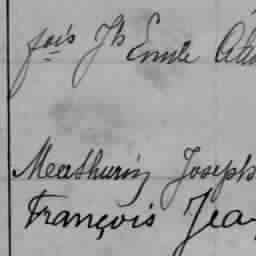 fois Jh Emile
Mathurin Joseph
François Jea